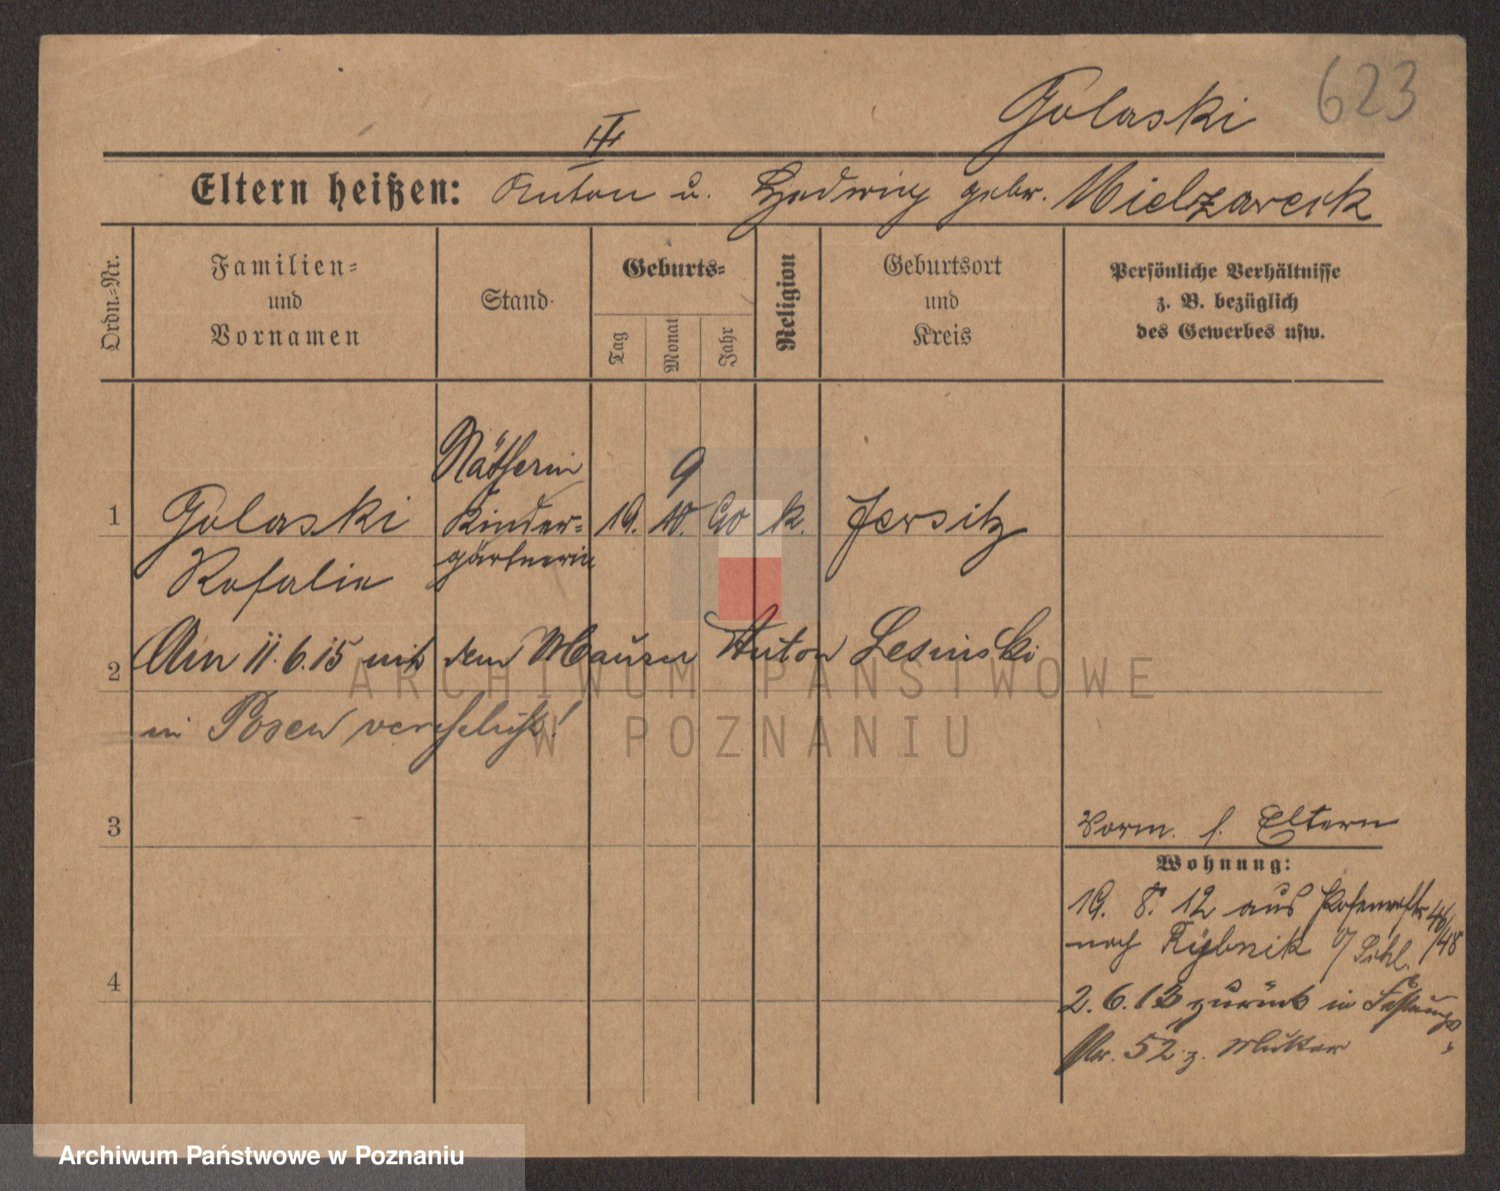 623
Golaski
III
Eltern heißen: Anton u. Hedwig gebr. Mielzareck
Ordn.=Nr.
Familien=
und
Vornamen
Stand
Geburts=
Tag
Monat
Jahr
Religion
Geburtsort
und
Kreis
Persönliche Verhältnisse
z. B. bezüglich
des Gewerbes usw.
Nätherin
9
1 Golaski Kinder= 19. 10. 90 k. Jersitz
gärtnerin
Rosalie
2 Am 11.6.15 mit dem Maurer Anton Lesinski
in Posen verehelicht!
3
Vorm. s. Eltern
Wohnung:
19. 8. 12 aus 46/48
nach Rybnik O/Schl.
4
2. 6. 13 zurück in
Nr. 52 z. Mutter
ARCHIWUM PAŃSTWOWE
W POZNANIU
Archiwum Państwowe w Poznaniu